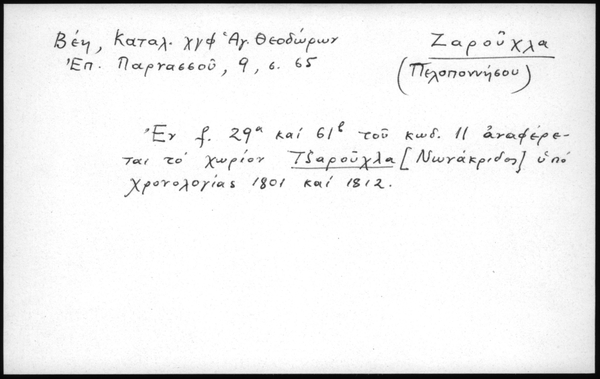 Βέη, Καταλ. χγφ Ἁγ. Θεοδώρων
Ἐπ. Παρνασσοῦ, 9, σ. 65
Ζαροῦχλα
(Πελοποννήσου)
Ἐν f. 29ª καί 61ᵇ τοῦ κωδ. 11 ἀναφέρε-
ται τό χωρίον Τζαροῦχλα [Νωνάκριδος] ὑπό
χρονολογίας 1801 καί 1812.